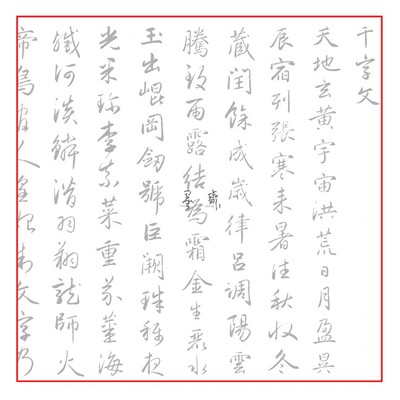 千字文
天地玄黃宇宙洪荒日月盈昃
辰宿列張寒来暑往秋收冬
藏閏餘成歲律呂調陽雲
騰致雨露結為霜金生麗水
玉出崐岡劒號巨闕珠稱夜
光果珍李柰菜重芥薑海
鹹河淡鱗潛羽翔龍師火
帝鳥官人皇始制文字乃